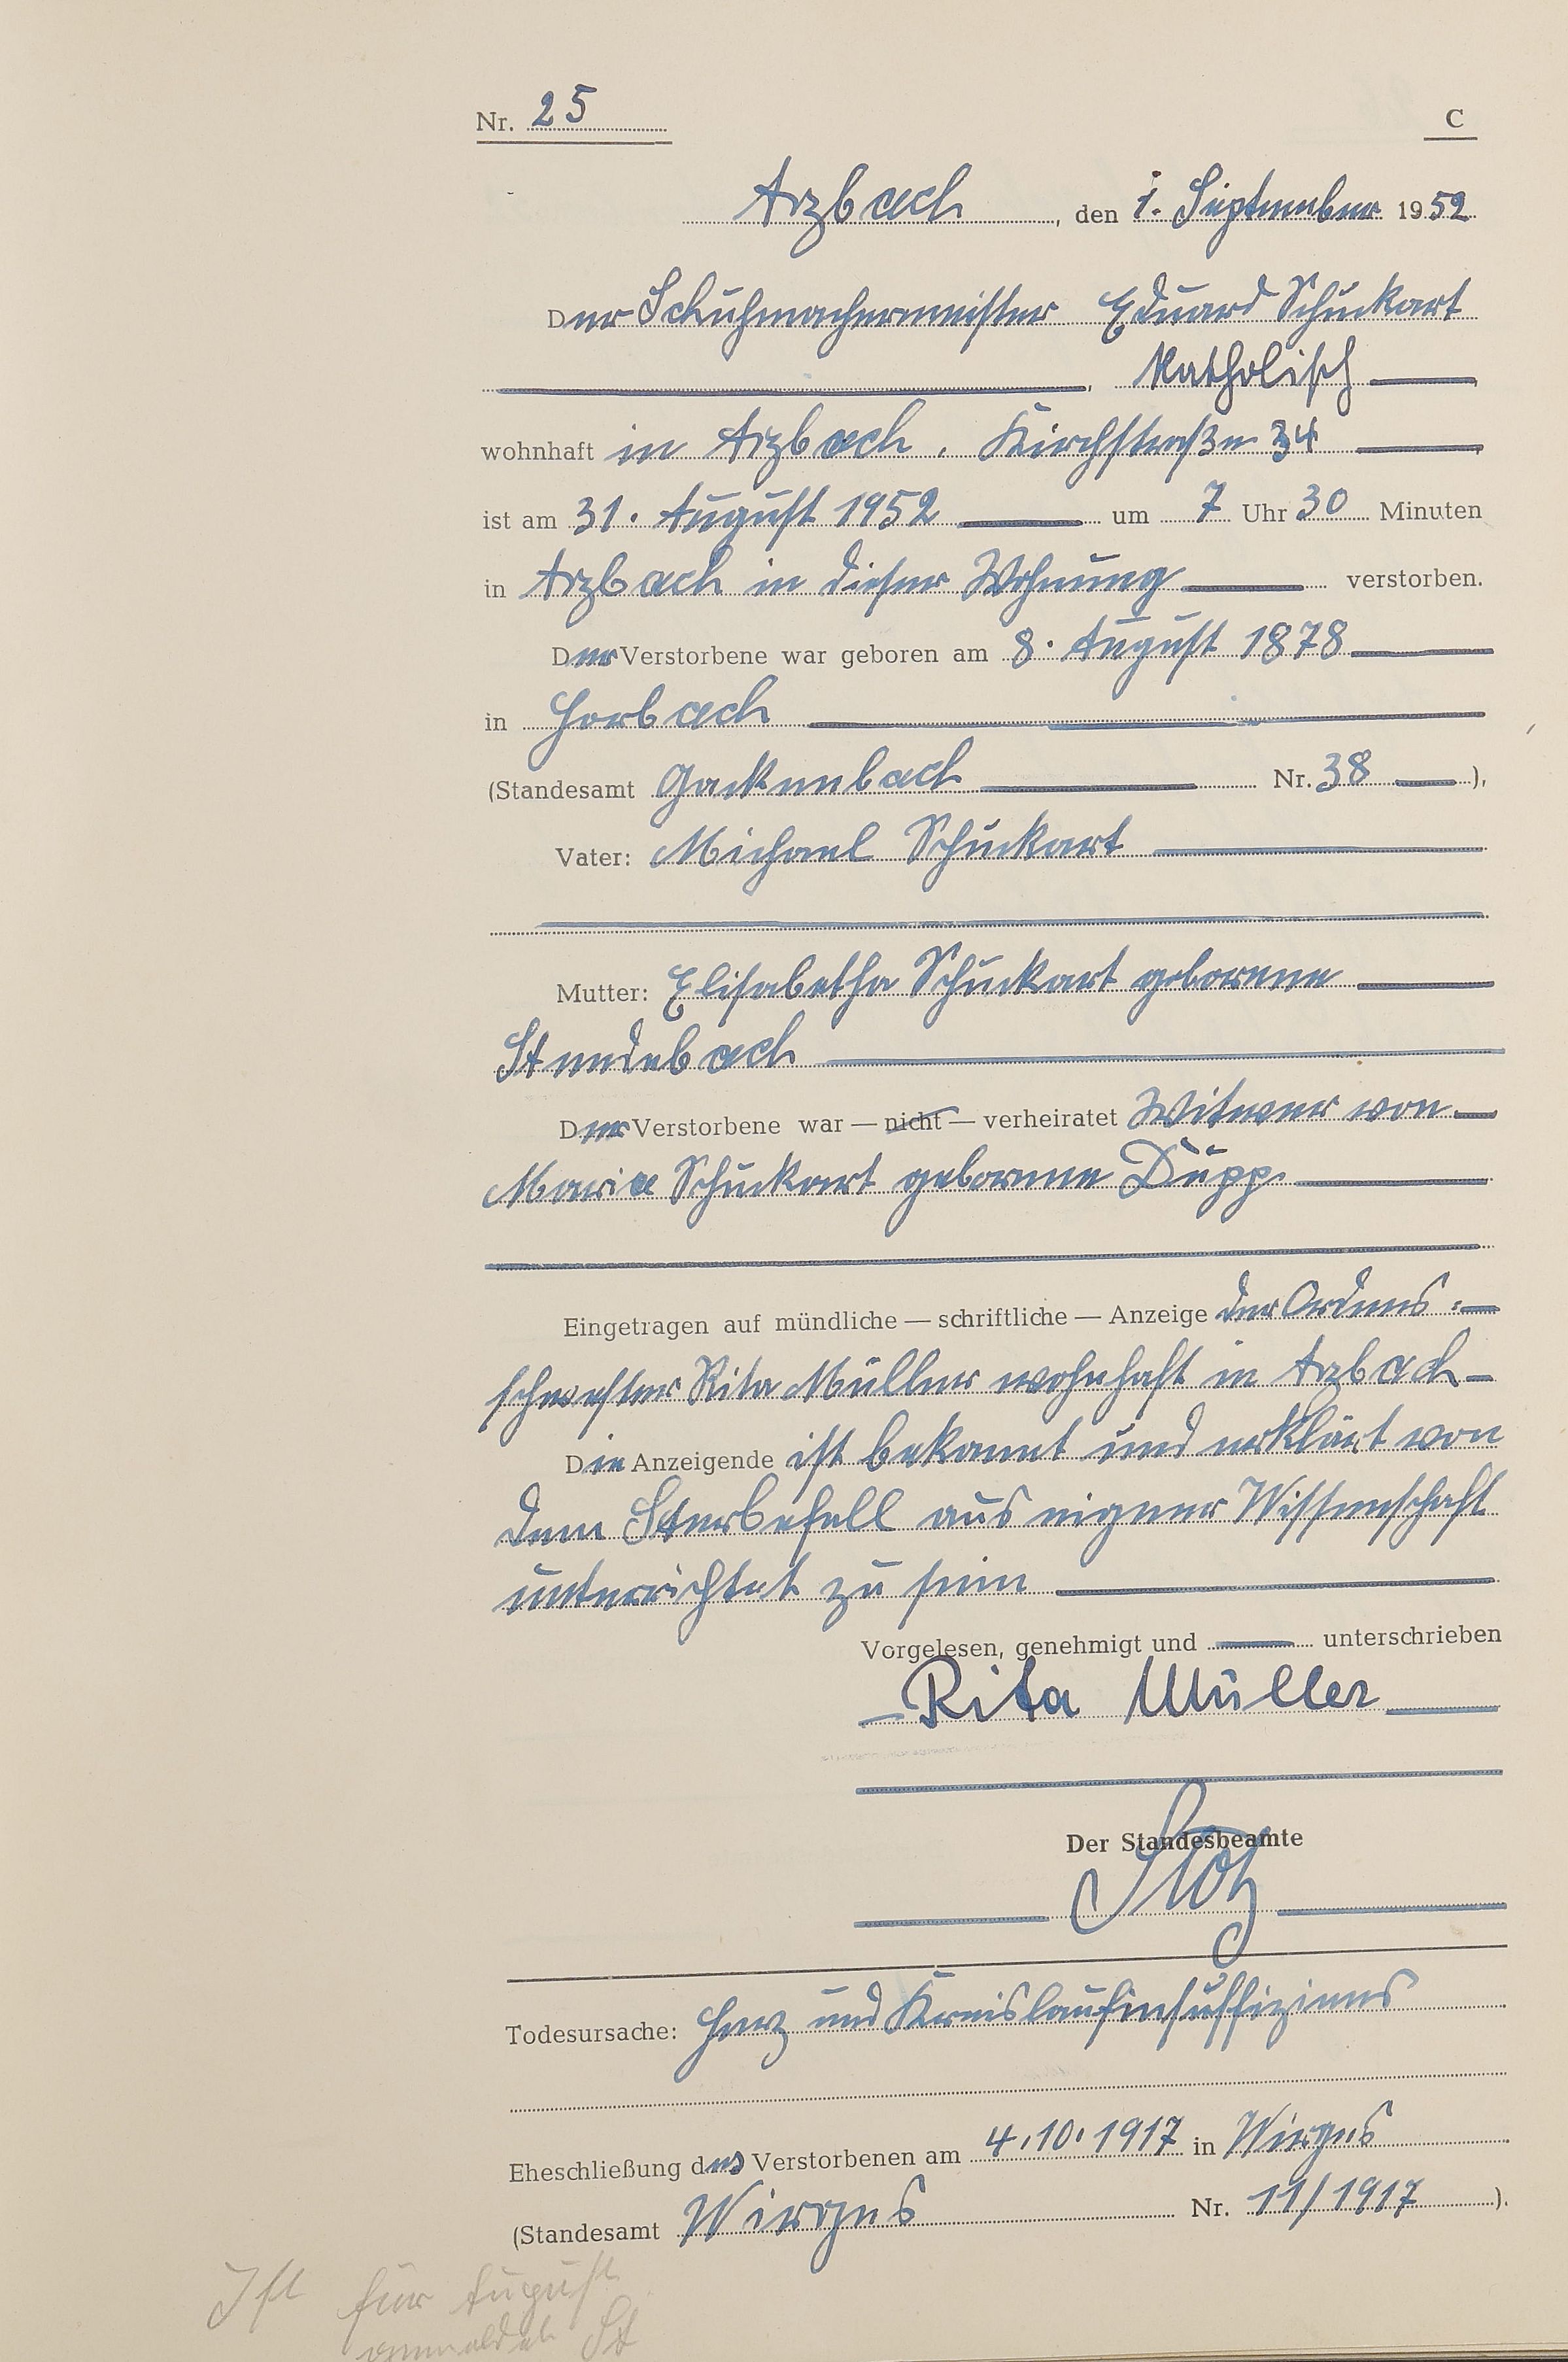 Nr. 25 C
Arzbach, den 1. September 1952
Der Schuhmachermeister Eduard Schuckart
, katholisch
wohnhaft in Arzbach, Kirchstraße 34
ist am 31. August 1952 um 7 Uhr 30 Minuten
in Arzbach in dieser Wohnung verstorben.
Der Verstorbene war geboren am 8. August 1878
in Horbach
(Standesamt Gackenbach Nr. 38 ),
Vater: Michael Schuckart
Mutter: Elisabetha Schuckart geborene
Stendebach
Der Verstorbene war — nicht — verheiratet Witwer von
Maria Schuckart geborene Düpp
Eingetragen auf mündliche — schriftliche — Anzeige der Ordens-
schwester Rita Müller wohnhaft in Arzbach
Die Anzeigende ist bekannt und erklärt von
dem Sterbefall aus eigener Wissenschaft
unterrichtet zu sein
Vorgelesen, genehmigt und unterschrieben
Rita Müller
Der Standesbeamte
Stotz
Todesursache: Herz und Kreislaufinsuffiziens
Eheschließung des Verstorbenen am 4.10.1917 in Wirges
(Standesamt Wirges Nr. 11/1917 ).
Ist für August
gemeldet St